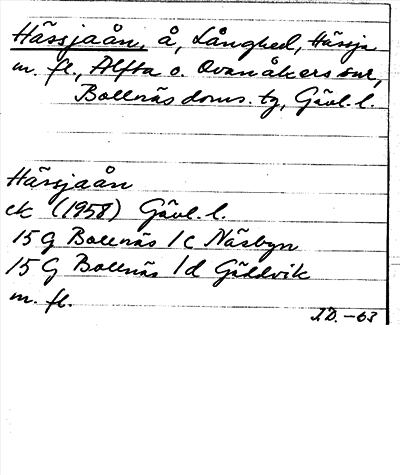 Hässjaån, å, Långhed, Hässja
m. fl., Alfta o. Ovanåkers snr,
Bollnäs doms. tg, Gävl. l.
Hässjaån
ek (1958) Gävl. l.
15 G Bollnäs 1c Näsbyn
15 G Bollnäs 1d Gällvik
m. fl.
ÅD. -63